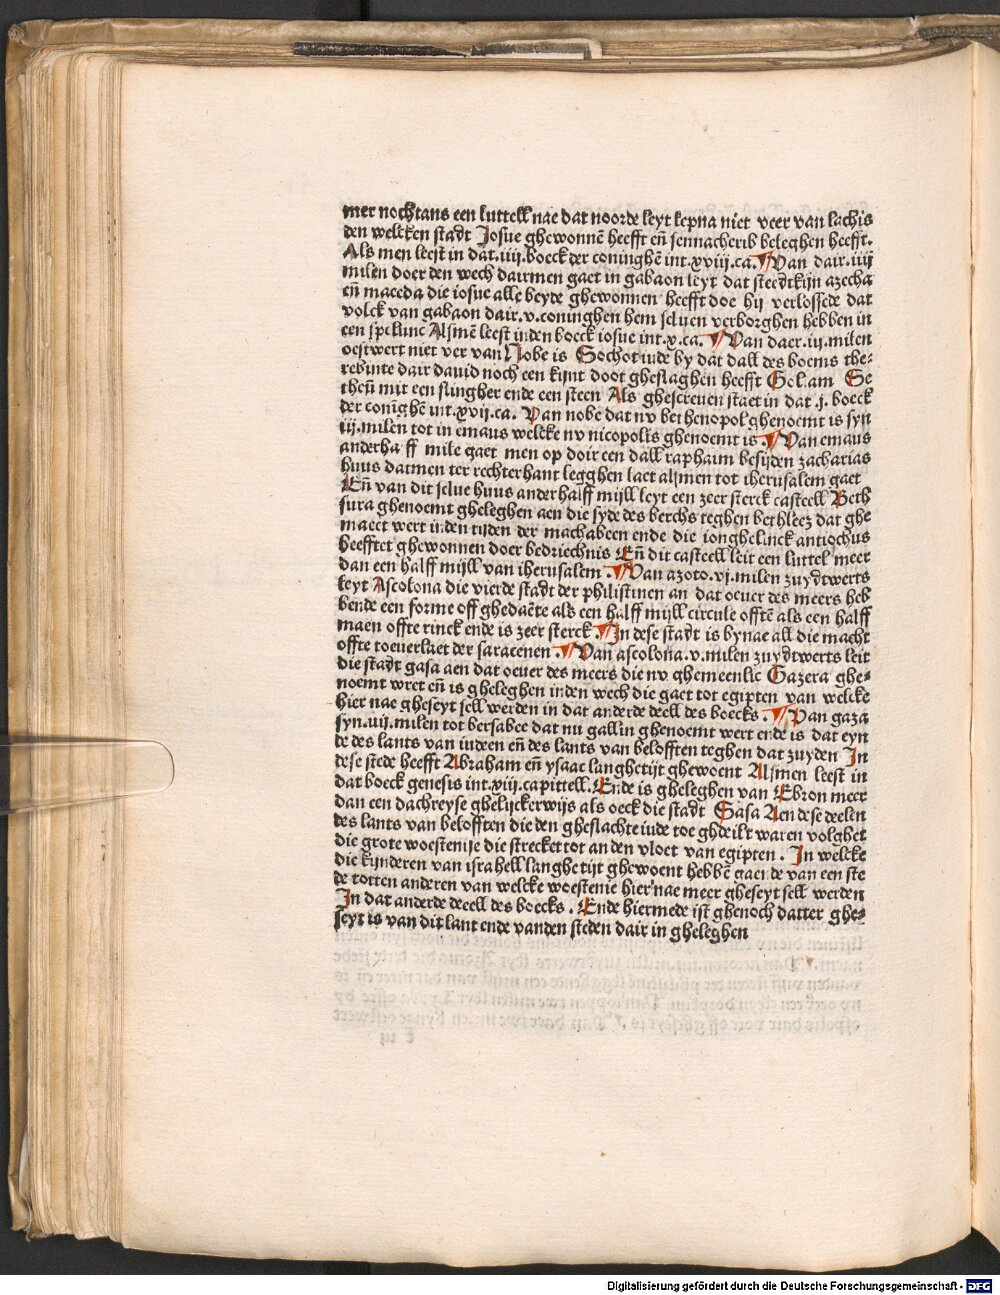 mer nochtans een luttell nae dat noorde leyt lepna niet veer van lachis
den welcken stadt Josue ghewonnē heefft eñ sennacherib beleghen heefft.
Als men leest in dat .iiij. boeck der coninghē int .xviij. ca. ¶ Van dair .iiij
milen doer den wech dairmen gaet in gabaon leyt dat stedtkijn azecha
eñ maceda die iosue alle beyde ghewonnen heefft doe hij verlossede dat
volck van gabaon dair .v. coninghen hem seluen verborghen hebben in
een spelunc Alsmē leest inden boeck iosue int .x. ca. ¶ Van daer .iij. milen
oestwert niet ver van Nobe is Sochot iude by dat dall des boems the-
rebinte dair dauid noch een kijnt doot gheslaghen heefft Goliam Ge
theñ mit een slingher ende een steen Als ghescreuen staet in dat .j. boeck
der conīghē int .xvij. ca. Van nobe dat nv bethenopol ghenoemt is syn
iij. milen tot in emaus welcke nv nicopolis ghenoemt is. ¶ Van emaus
anderhalff mile gaet men op doir een dall raphaim besijden zacharias
huus datmen ter rechterhant legghen laet alsmen tot iherusalem gaet
Eñ van dit selue huus anderhalff mijll leyt een zeer sterck casteell Beth
sura ghenoemt gheleghen aen die syde des berchs teghen bethleez dat ghe
maect wert inden tijden der machabeen ende die ionghelinck antiochus
heefftet ghewonnen doer bedriechnis Eñ dit casteell leit een luttel meer
dan een halff mijll van iherusalem. ¶ Van azoto .vj. milen zuydtwerts
leyt Ascolona die vierde stadt der philistinen an dat oeuer des meers heb
bende een forme off ghedaēte als een halff mijll circule offtē als een halff
maen offte rinck ende is zeer sterck. ¶ In dese stadt is bynae all die macht
offte toeuerlaet der saracenen. ¶ Van ascolona .v. milen zuydtwerts leit
die stadt gasa aen dat oeuer des meers die nv ghemeenlic Gazera ghe-
noemt wret eñ is gheleghen inden wech die gaet tot egipten van welcke
hier nae gheseyt sell werden in dat anderde deell des boecks. ¶ Van gaza
syn .iiij. milen tot bersabee dat nu gallin ghenoemt wert ende is dat eyn
de des lants van iudeen eñ des lants van belofften teghen dat zuyden In
dese stede heefft Abraham eñ ysaac langhetijt ghewoent Alsmen leest in
dat boeck genesis int .xiij. capittell. Ende is gheleghen van Ebron meer
dan een dachreyse ghelijckerwijs als oeck die stadt Gasa Aen dese deelen
des lants van belofften die den gheslachte iude toe ghdeilt waren volghet
die grote woestenije die strecket tot an den vloet van egipten. In welcke
die kynderen van israhell langhe tijt ghewoent hebbē gaende van een ste
de totten anderen van welcke woestenie hier nae meer gheseyt sell werden
In dat anderde deell des boecks. Ende hiermede ist ghenoch datter ghe-
seyt is van dit lant ende vanden steden dair in gheleghen
Digitalisierung gefördert durch die Deutsche Forschungsgemeinschaft - DFG